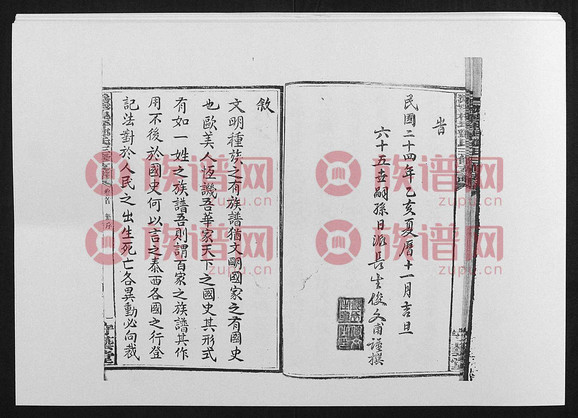 旹
民國二十四年乙亥夏曆十一月吉旦
六十五世嗣孫日派長生俊文甫謹撰
敘
文明種族之有族譜猶文明國家之有國史
也歐美人恆譏吾華家天下之國史其形式
有如一姓之族譜吾則謂百家之族譜其作
用不後於國史何以言之泰西各國之行登
記法對於人民之出生死亡各異動必向裁
族谱网
zupu.cn
族谱网
zupu.cn
族谱网
zupu.cn
族谱网
zupu.cn